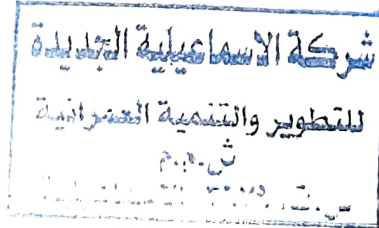 شركة الاسماعيلية الجديدة
للتطوير والتنمية العمرانية
ش.م.م
س.ت.